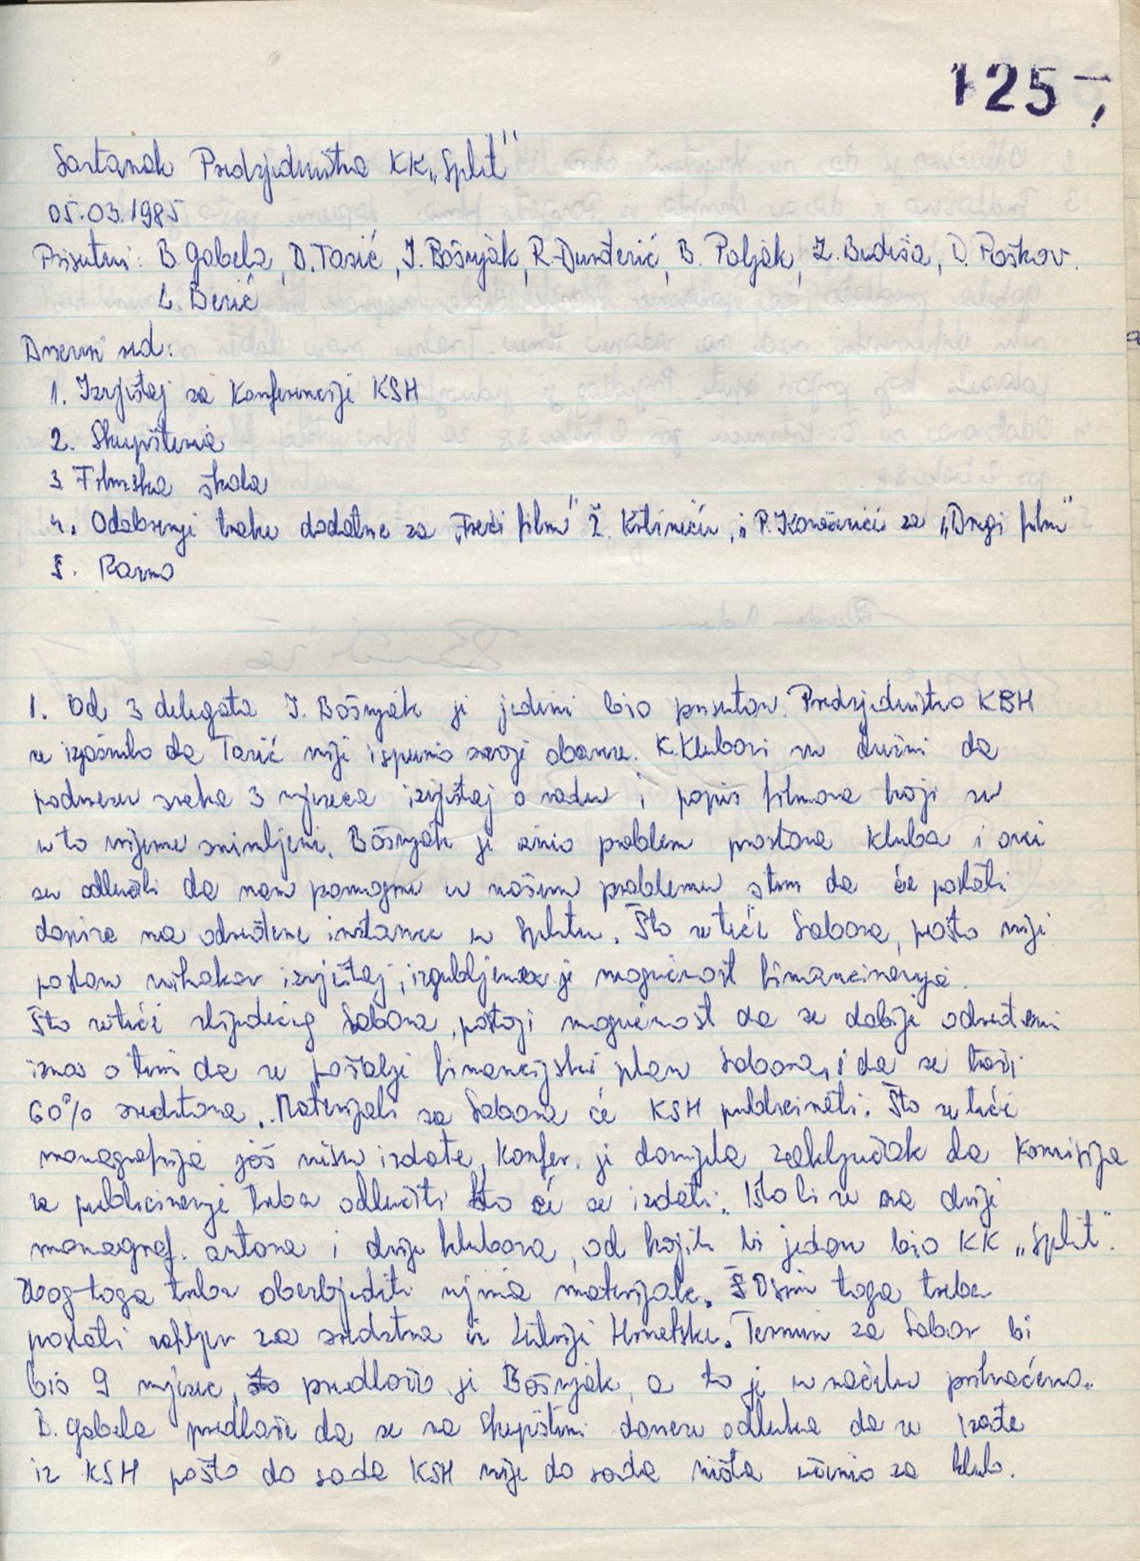 125-,
Sastanak Predsjedništva KK „Split"
05.03.1985
Prisutni: B. Gabela, D. Tasić, J. Bošnjak, R. Dunđerić, B. Poljak, Z. Budiša, D. Poškov.
L. Berić
Dnevni red:
1. Izvještaj sa Konferencije KSH
2. Skupština
3. Filmska škola
4. Odobrenje trake dodatne za „Treći film" Ž. , i P. za „Drugi film"
5. Razno
1. Od 3 delegata J. Bošnjak je jedini bio prisutan. Predsjedništvo KSH
se izjasnilo da Tasić nije ispunio svoje obaveze. K. Klubovi su dužni da
podnesu svaka 3 mjeseca izvještaj o radu i popis filmova koji su
u to vrijeme snimljeni. Bošnjak je problem prostora kluba i oni
su odlučili da nam pomognu u našem problemu s tim da će poslati
dopise na određene instance u Splitu. Što se tiče Sabora, pošto nije
poslan nikakav izvještaj, izgubljena je mogućnost financiranja.
Što se tiče slijedećeg Sabora, postoji mogućnost da se dobije određeni
iznos s tim da se pošalje financijski plan Sabora, i da se traži
60% sredstava. Materijale sa Sabora će KSH publicirati. Što se tiče
monografija još nisu izdate, Konfer. je donijela zaključak da Komisija
za publiciranje treba odlučiti što će se izdati. Išlo bi se na dvije
monograf. autora i dvije klubova, od kojih bi jedan bio KK „Split".
Zbog toga treba obezbjediti njima materijale. Osim toga treba
poslati zahtjev za sredstva iz Lutrije Hrvatske. Termin za Sabor bi
bio 9 mjesec, predložio je Bošnjak, a to je u načelu prihvaćeno.
B. Gabela predlaže da se na Skupštini donese odluka da se izađe
iz KSH pošto do sada KSH nije do sada ništa učinio za klub.